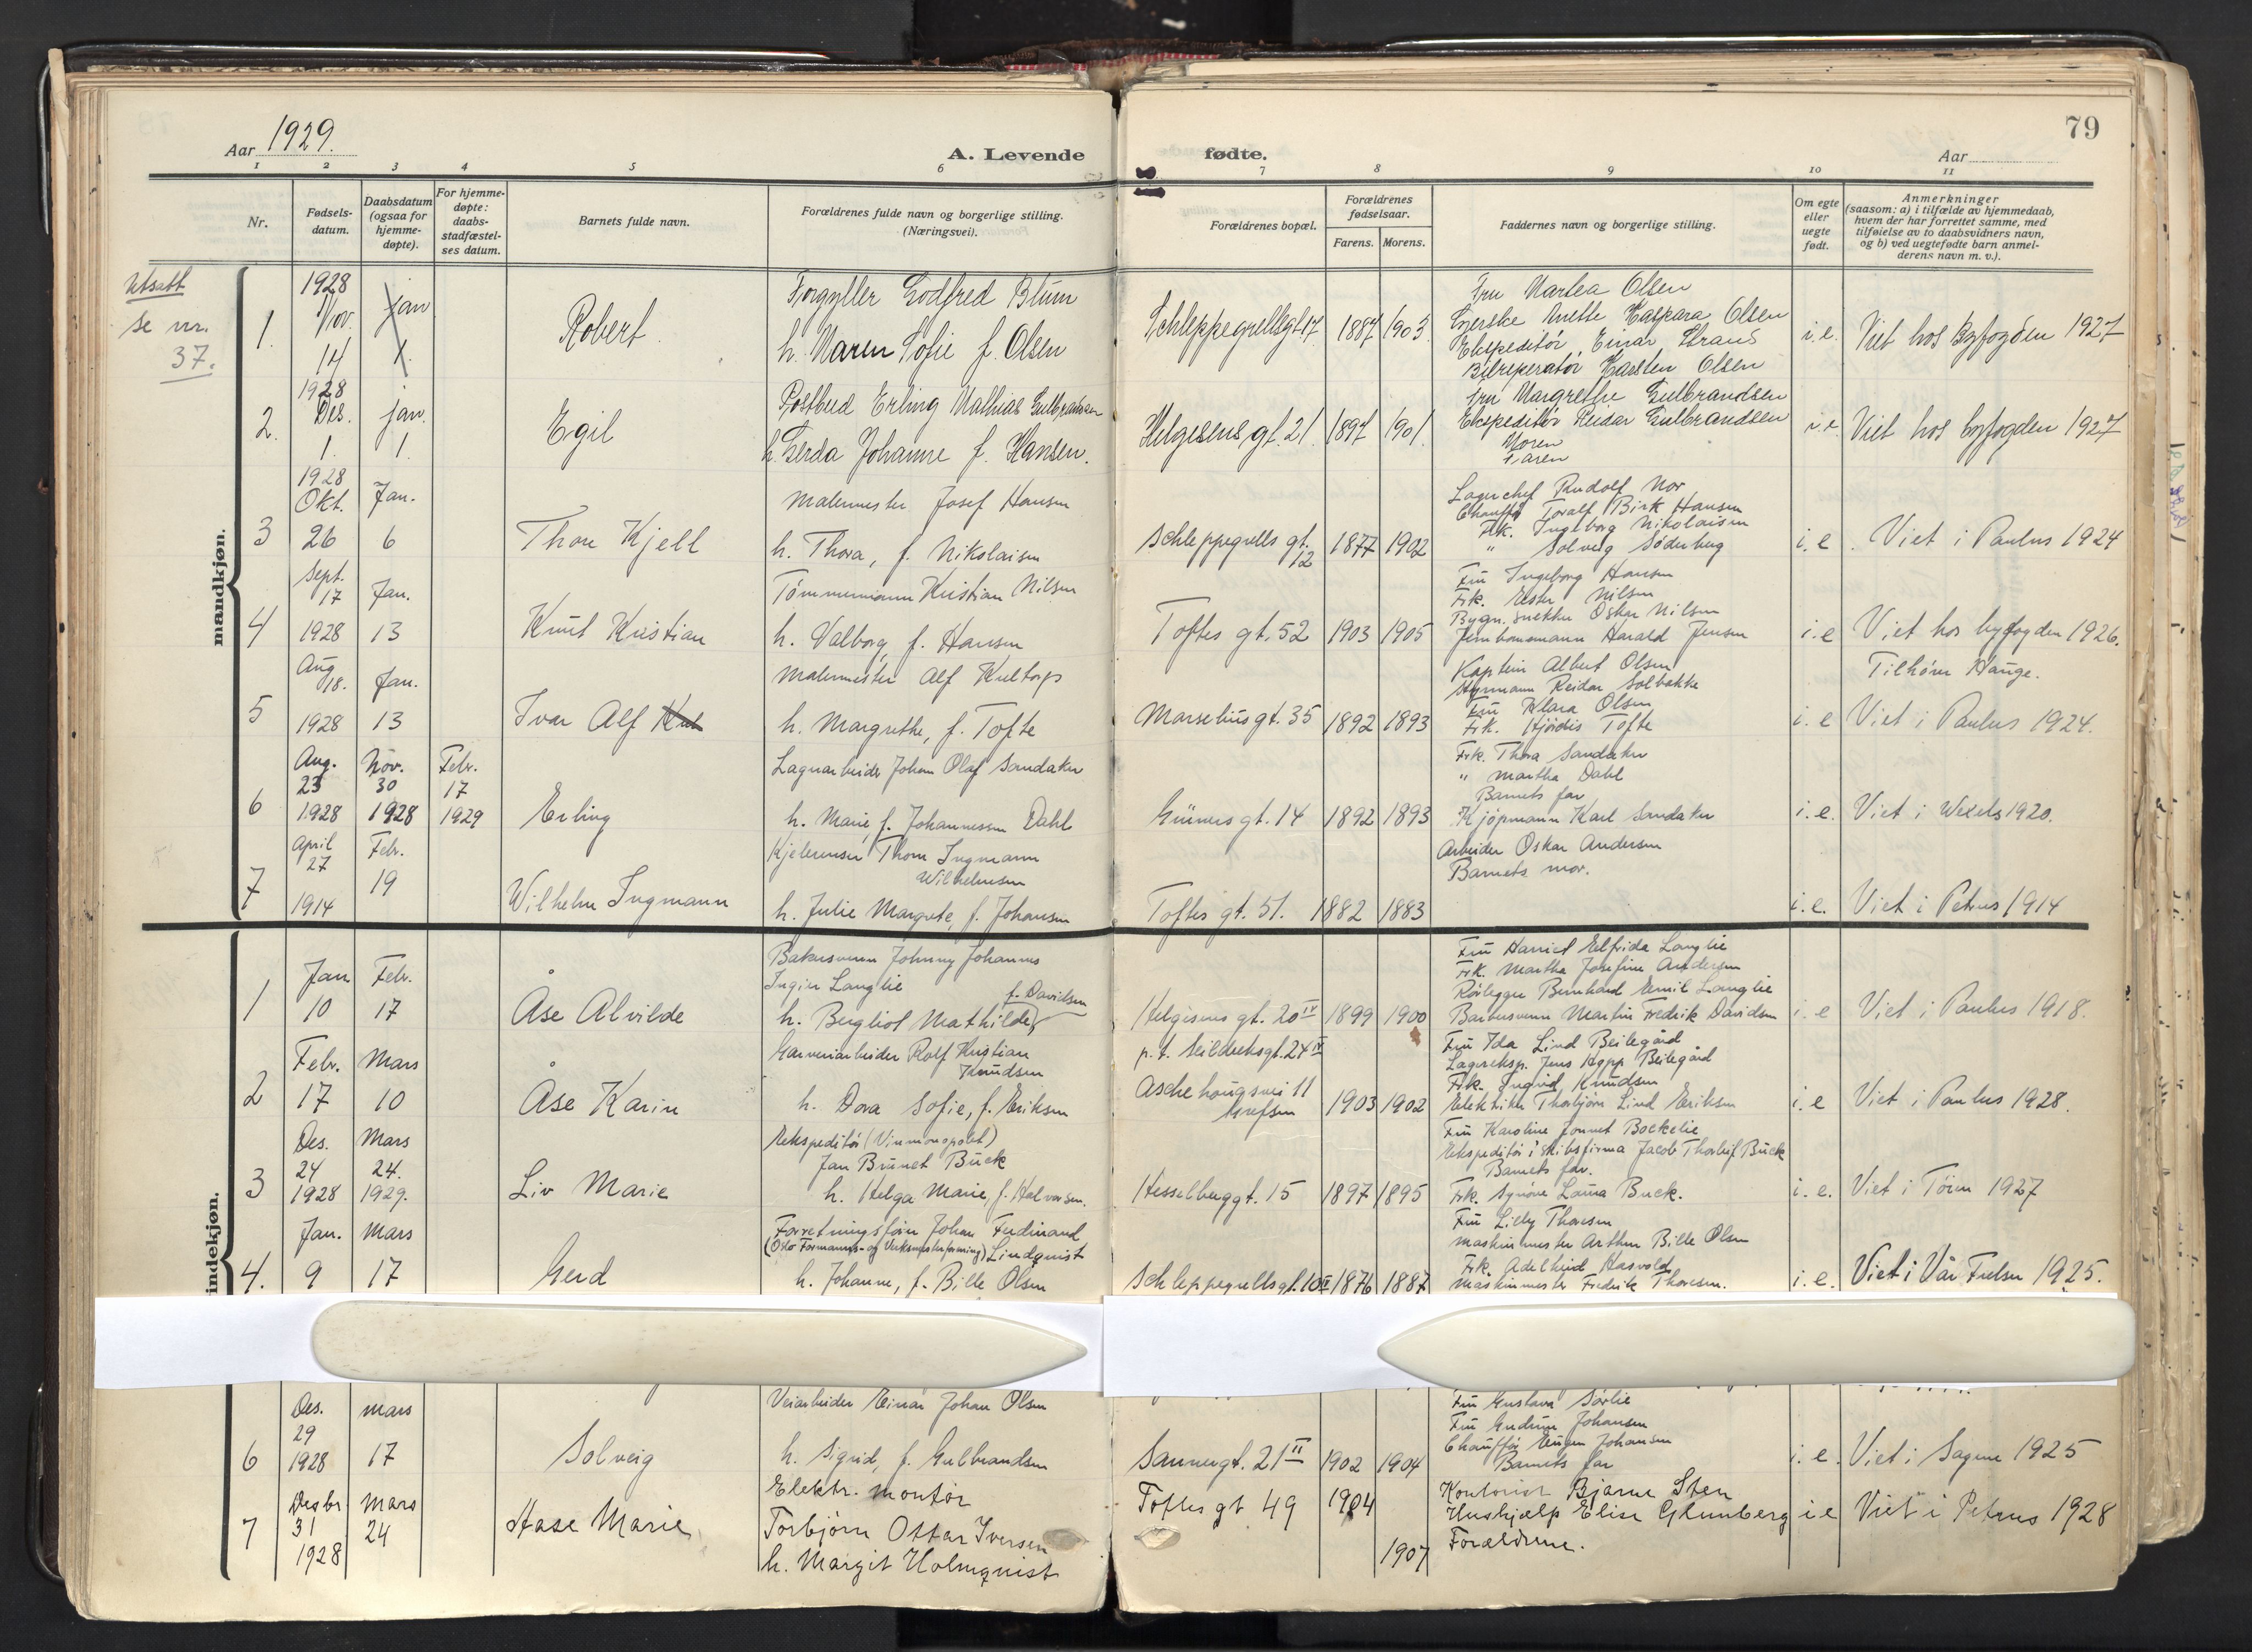 79
Aar 1929.
A. Levende
fødte.
Aar
1 2 3 4 5 6 7 8 9 10 11
Nr.
Fødsels-
datum.
Daabsdatum
(ogsaa for
hjemme-
døpte).
For hjemme-
døpte:
daabs-
stadfæstel-
ses datum.
Barnets fulde navn.
Forældrenes fulde navn og borgerlige stilling.
(Næringsvei).
Forældrenes bopæl.
Forældrenes
fødselsaar.
Farens.
Morens.
Faddernes navn og borgerlige stilling.
Om egte
eller
uegte
født.
Anmerkninger
(saasom: a) i tilfælde av hjemmedaab,
hvem der har forrettet samme, med
tilføielse av to daabsvidners navn,
og b) ved uegtefødte barn anmel-
derens navn m. v.).
mandkjøn.
utsatt
se nr.
37.
1.
1928
Nov.
14
jan
1.
Robert.
Forgyller Godfred Blum
h. Maren Sofie f. Olsen
Schleppegrellsgt. 17
1887
1903.
Fru Martea Olsen
Mette Kaspara Olsen
Ekspeditør Einar
Bilreperatør Karsten Olsen
i.e.
Viet hos Byfogden 1927
2.
1928
Des.
1.
jan.
1.
Egil
Postbud Erling Mathias Gulbrandsen
h. Gerda Johanne f. Hansen.
Helgesens gt. 21
1897
1901.
Fru Margrethe Gulbrandsen
Ekspeditør Reidar Gulbrandsen
Moren
Faren
i.e
Viet hos byfogden 1927
3
1928
Okt.
26
Jan.
6
Thore Kjell
Malermester Josef Hansen
h. Thora, f. Nikolaisen
Schleppegrells gt.
12
1877
1902
Lagerchef Rudolf Nor
Chauffør Toralf Birk Hansen
Frk. Ingeborg Nikolaisen
" Solveig Søderberg
i.e.
Viet i Paulus 1924
4
Sept.
17
1928
Jan.
13
Knut Kristian
Tømmermann Kristian Nilsen
h. Valborg, f. Hansen
Toftes gt. 52
1903
1905
Fru Ingeborg Hansen
Frk. Ester Nilsen
Bygn. snekker Oskar Nilsen
Jernbanemann Harald Jensen
i.e
Viet hos byfogden 1926.
Tilhører Hauge.
5
Aug
18.
1928
Jan.
13
Ivar Alf
Malermester Alf Kultorp
h. Margrethe, f. Tofte
Marselius gt. 35
1892
1893
Kaptein Albert Olsen
Styrmann Reidar Solbakke
Fru Klara Olsen
Frk. Hjørdis Tofte
i.e
Viet i Paulus 1924.
6
Aug.
23
1928
Nov.
30
1928
Febr.
17
1929
Erling
Lagerarbeider Johan Olaf Sandaker
h. Marie, f. Johannessen Dahl
Grüners gt. 14
1892
1893
Frk. Thora Sandaker
" Martha Dahl
Barnets far
Kjøpmann Karl Sandaker
i.e.
Viet i Wexels 1920.
7
April
27
1914
Febr.
19
Wilhelm Ingmann
Kjelrenser Thom Ingmann
Wilhelmsen
h. Julie Margrete, f. Johansen
Toftes gt. 51.
1882
1883
Arbeider Oskar Andersen
Barnets mor.
i.e.
Viet i Petrus 1914
indekjøn.
1
Jan
10
Febr.
17
Åse Alvilde
Bakersvenn Johnny Johannes
Ingier Langlie
h. Bergliot Mathilde, f. Davidsen
Helgesens gt. 20 IV
1899
1900
Fru Harriet Elfrida Langlie
Frk. Martha Josefine Andersen
Rørlegger Bernhard Emil Langlie
Bakersvenn Martin Fredrik Davidsen
i.e
Viet i Paulus 1918.
2
Febr.
17
Mars
10
Åse Karin
Garveriarbeider Rolf Kristian
Knudsen
h. Dora Sofie, f. Eriksen
p.t. Seilduksgt. 24 IV
Aschehougsvei 11
Grefsen
1903
1902
Fru Ida Lind Beilegård
Lagereksp. Jens Kopp Beilegård
Frk. Ingrid Knudsen
Elektriker Thorbjørn Lind Eriksen
i.e
Viet i Paulus 1928.
3
Des.
24
1928
Mars
24.
1929.
Liv Marie
Ekspeditør (Vinmonopolet)
Jan Brunet Buck
h. Helga Marie, f. Halvorsen.
Hesselberggt. 15
1897
1895
Fru Karoline Jonnet Bockelie
Ekspeditør i skibsfirma Jacob Thorleif Buck
Barnets far.
Frk. Synøve Laura Buck.
i.e.
Viet i Tøien 1927
4.
Jan.
9
Mars
17
Gerd
Forretningsfører Johan Ferdinand
(Oslo Formanns- og Verksmesterforening) Lindquist
h. Johanne, f. Bille Olsen
Schleppegrellsgt. 10 II
1876
1887
Fru Lilly Thoresen
Maskinmester Arthur Bille Olsen
Frk. Adelheid Hasvold
Maskinmester Fredrik Thoresen.
i.e.
Viet i Vår Frelser 1925.
6
Des.
29
1928
Mars
17
Solveig
Veiarbeider Einar Johan Olsen
h. Sigrid, f. Gulbrandsen
Sannergt. 21 II
1902
1904
Fru Gustava Sørlie
Fru Gudrun Johansen
Chauffør Eugen Johansen
Barnets far
i.e.
Viet i Sagene 1925
7
Desbr
31
1928
Mars
24
Aase Marie
Elektr. montør
Torbjørn Ottar Iversen
h. Margit Holmquist
Toftes gt 49
1904
1907
Kontorist Bjarne Sten
Hushjælp Elise Grunberg
Forældrene.
i e
Viet i Petrus 1928